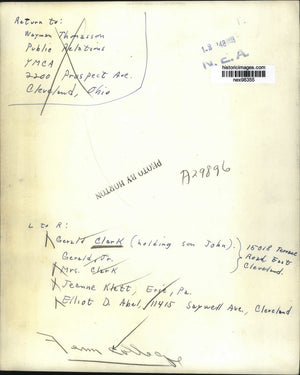 Return to:
Wayman Thomasson
Public Relations
YMCA
2200 Prospect Ave.
Cleveland, Ohio
N.E.A.
historicimages.com
nex96355
PHOTO BY HORTON
A29896
L to R:
Gerald Clark (holding son John).
Gerald, Jr.
Mrs. Clark
15018 Terrace
Road East
Cleveland.
Jeanne Klett, Erie, Pa.
Elliot D. Abel, 11415 Saywell Ave., Cleveland
Fenn College